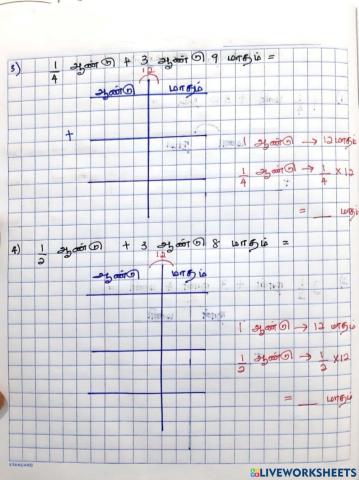 3) 1/4 ஆண்டு + 3 ஆண்டு 9 மாதம் =
12
ஆண்டு மாதம்
+
1 ஆண்டு → 12 மாதம்
1/4 ஆண்டு → 1/4 x 12
= __ மாதம்
4) 1/2 ஆண்டு + 3 ஆண்டு 8 மாதம் =
12
ஆண்டு மாதம்
1 ஆண்டு → 12 மாதம்
1/2 ஆண்டு → 1/2 x 12
= __ மாதம்
LIVEWORKSHEETS